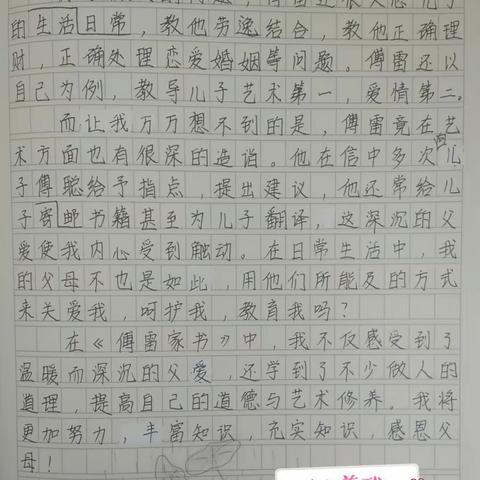 的生活日常，教他劳逸结合，教他正确理
财，正确处理恋爱婚姻等问题。傅雷还以
自己为例，教导儿子艺术第一，爱情第二。
而让我万万想不到的是，傅雷竟在艺
术方面也有很深的造诣。他在信中多次向儿
子傅聪给予指点，提出建议，他还常给儿
子寄邮书籍甚至为儿子翻译，这深沉的父
爱使我内心受到触动。在日常生活中，我
的父母不也是如此，用他们所能及的方式
来关爱我，呵护我，教育我吗？
在《傅雷家书》中，我不仅感受到了
温暖而深沉的父爱，还学到了不少做人的
道理，提高自己的道德与艺术修养。我将
更加努力，丰富知识，充实知识，感恩父
母！